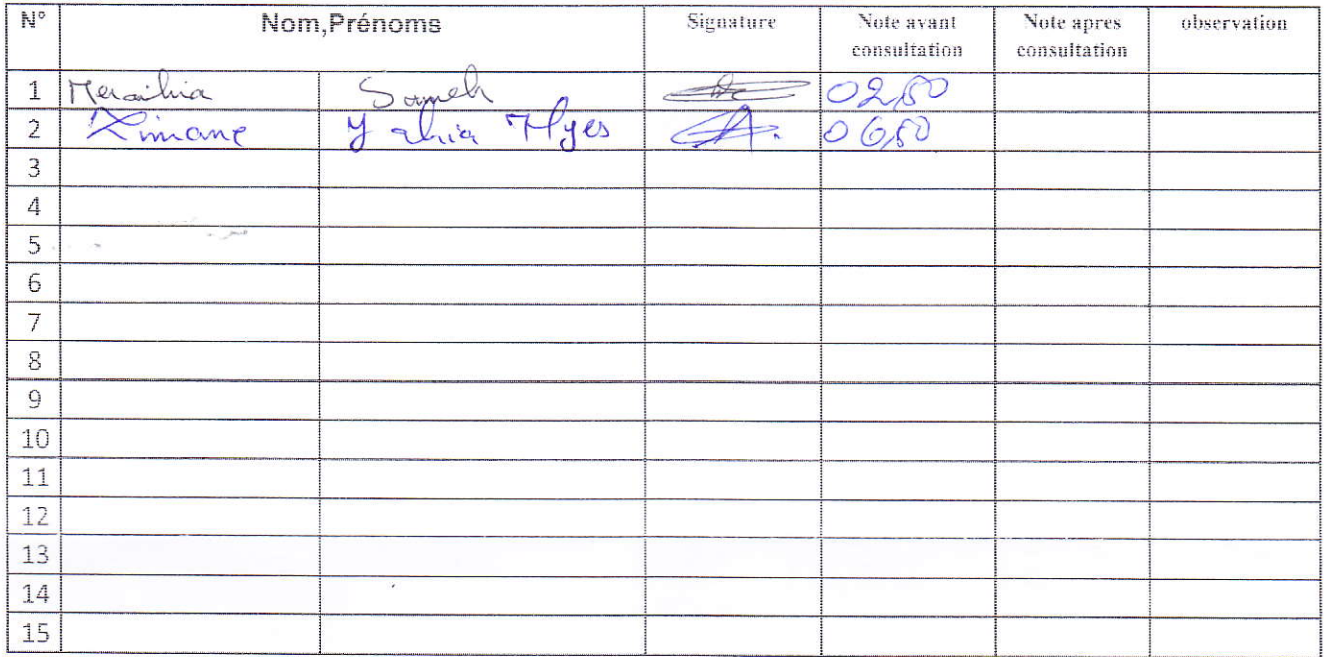 N° Nom,Prénoms Signature Note avant consultation Note apres consultation observation
1 Meraihia Sameh 02,50
2 Limane Yahia Ilyes 06,50
3
4
5
6
7
8
9
10
11
12
13
14
15